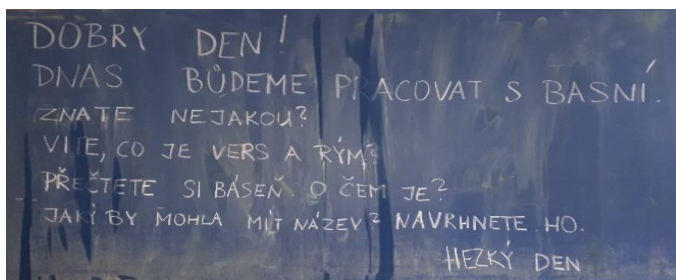 DOBRY DEN!
DNAS BŮDEME PRACOVAT S BASNÍ.
ZNATE NEJAKOU?
VITE, CO JE VERS A RÝM?
PŘEČTETE SI BÁSEŇ O ČEM JE?
JAKÝ BY MOHLA MÍT NÁZEV? NAVRHNETE HO.
HEZKÝ DEN